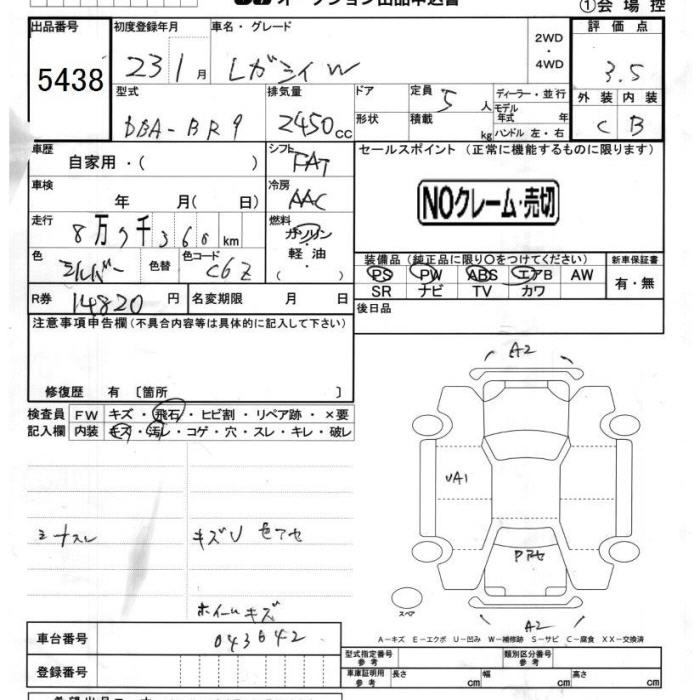 オークション出品申込書
①会場控
出品番号 初度登録年月 車名・グレード 2WD ・ 4WD 評価点
5438 23 1月 レガシィW 3.5
型式 排気量 ドア 定員 5人 ディーラー・並行 外装 内装
DBA-BR9 2450cc 形状 積載 kg モデル年式 年 ハンドル 左・右 C B
車歴 自家用・( ) シフト FAT セールスポイント (正常に機能するものに限ります)
車検 年 月( 日) 冷房 AAC
NOクレーム・売切
走行 8万7千366km 燃料 ガソリン・軽油・
色 シルバー 色替 色コード C6Z
装備品 (純正品に限り〇をつけてください) 新車保証書
PS PW ABS エアB AW 有・無
SR ナビ TV カワ
R券 14820円 名変期限 月 日 後日品
注意事項申告欄(不具合内容等は具体的に記入して下さい)
修復歴 有 〔箇所 〕
検査員 FW キズ・飛石・ヒビ割・リペア跡・×要
記入欄 内装 キズ・汚レ・コゲ・穴・スレ・キレ・破レ
A2
UA1
キズU
ホイールキズ
スペア
A2
A-キズ E-エクボ U-凹み W-補修跡 S-サビ C-腐食 XX-交換済
車台番号 043642
型式指定番号 参考 類別区分番号 参考
登録番号
車庫証明用 参考 長さ cm 幅 cm 高さ cm